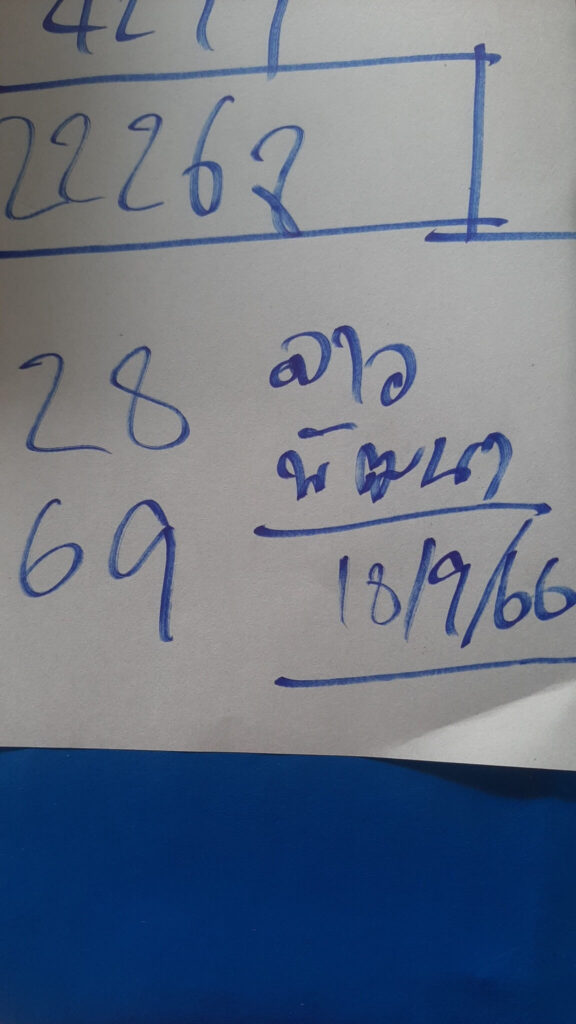 22263
28 ลาว
พัฒนา
69
18/9/66